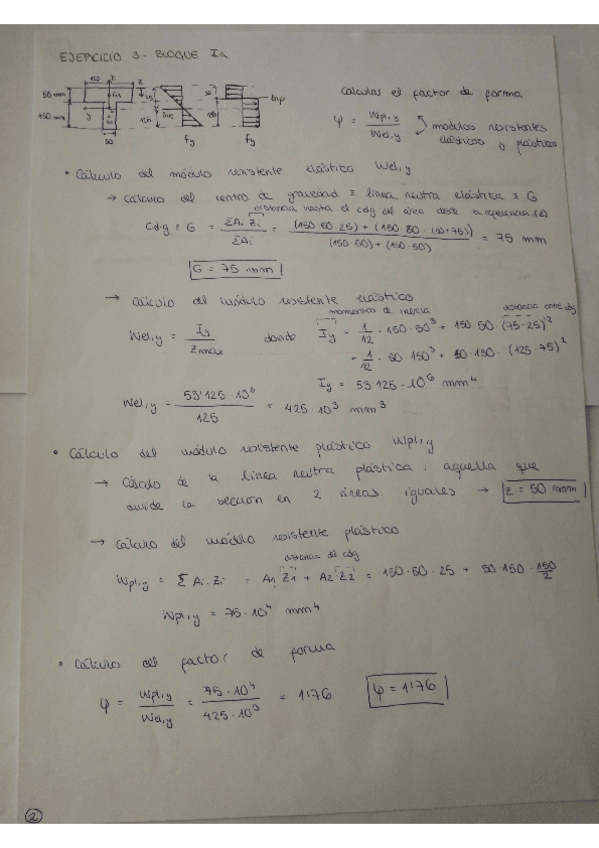 EJERCICIO 3 - BLOQUE Ia
150 z
50 mm
150 mm
y G1
50
75
125
lne
fy
50
150
lnp
fy
Calcular el factor de forma
φ = Wpl,y / Wel,y módulos resistentes elásticos y plásticos
• Cálculo del módulo resistente elástico Wel,y
→ Cálculo del centro de gravedad ≡ línea neutra elástica ≡ G
distancia hasta el cdg del área desde la referencia (z)
Cdg ≡ G = ΣAi Zi / ΣAi = (150·50·25) + (150·50·(50+75)) / (150·50) + (150·50) = 75 mm
G = 75 mm
→ Cálculo del módulo resistente elástico
momentos de inercia distancia entre cdg
Wel,y = Iy / zmax donde Iy = 1/12 · 150·50³ + 150·50·(75-25)²
+ 1/12 · 50·150³ + 50·150·(125-75)²
Iy = 53'125·10⁶ mm⁴
Wel,y = 53'125·10⁶ / 125 = 425·10³ mm³
• Cálculo del módulo resistente plástico Wpl,y
→ Cálculo de la línea neutra plástica: aquella que
divide la sección en 2 áreas iguales → z = 50 mm
→ Cálculo del módulo resistente plástico
distancias del cdg
Wpl,y = Σ Ai·Zi = A1 Z1 + A2·Z2 = 150·50·25 + 50·150·150/2
Wpl,y = 75·10⁴ mm⁴
• Cálculo del factor de forma
φ = Wpl,y / Wel,y = 75·10⁴ / 425·10³ = 1'76 φ = 1'76
2